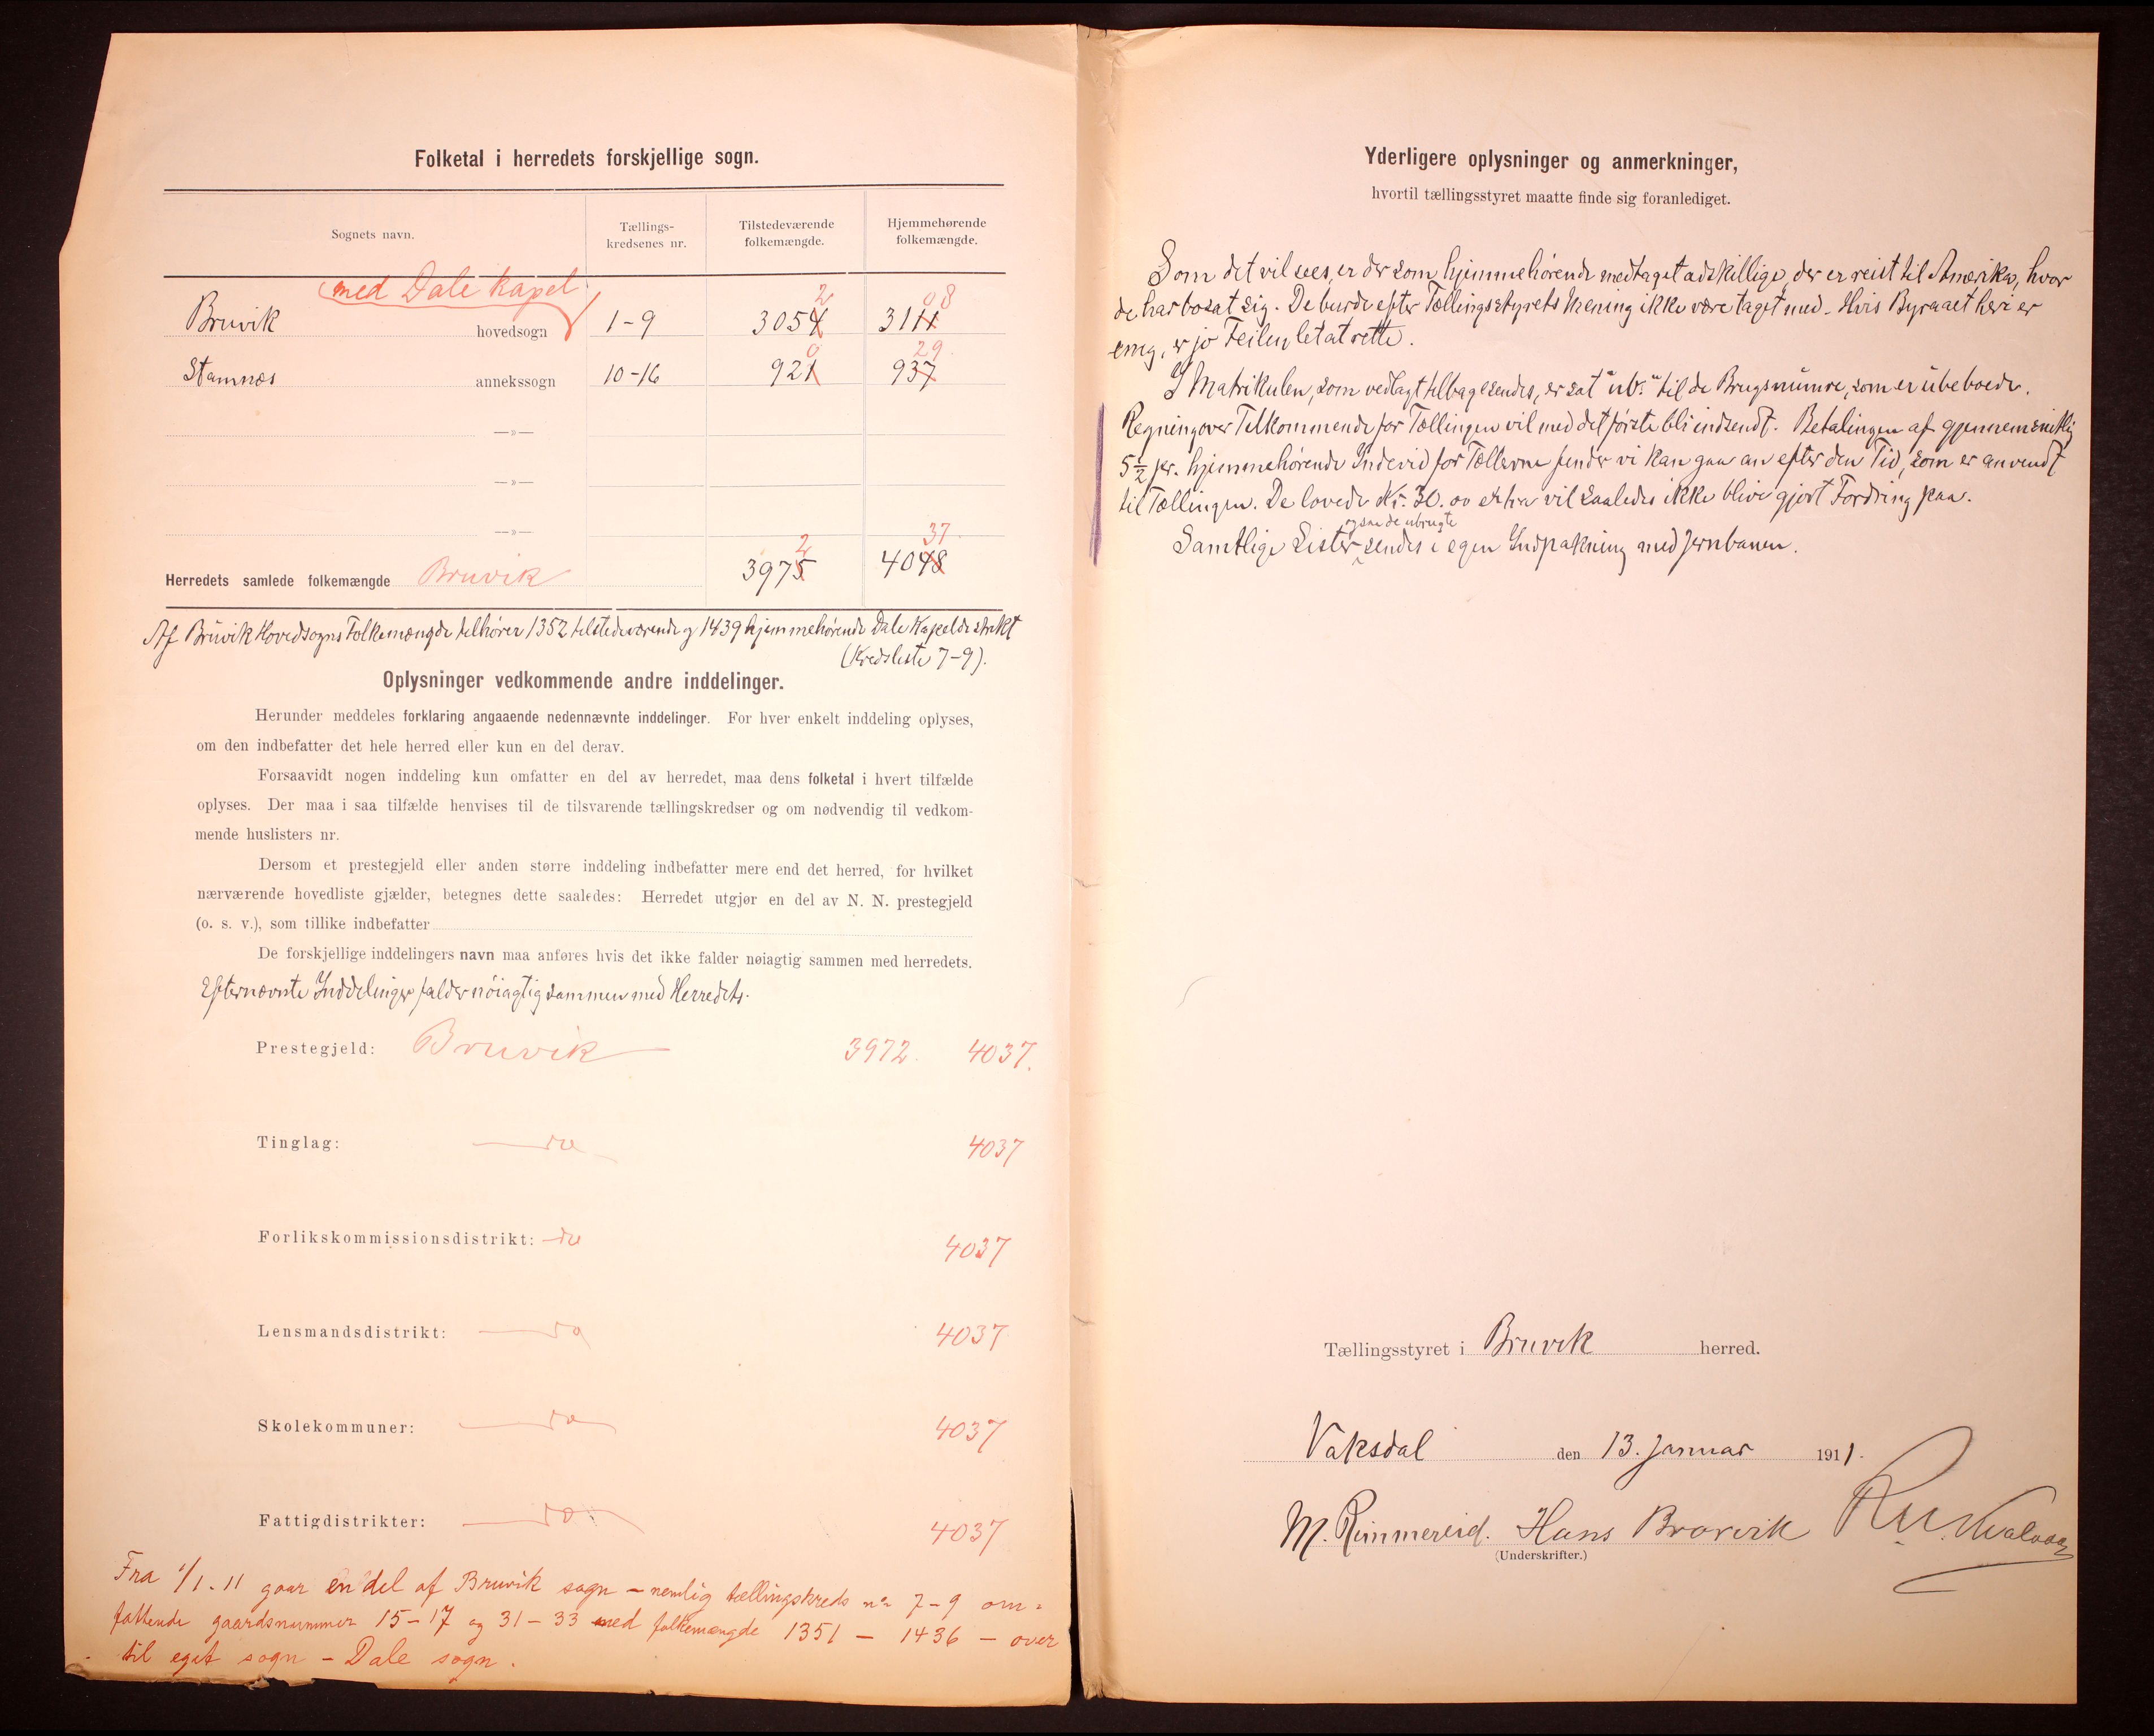 Folketal i herredets forskjellige sogn.
Sognets navn.
Tællings-
kredsenes nr.
Tilstedeværende
folkemængde.
Hjemmehørende
folkemængde.
med Dale kapel
2 08
Bruvik hovedsogn 1-9 3054 3111
0 29.
Stamnes annekssogn 10-16 921 937
—»—
—»—
—»—
2 37
Herredets samlede folkemængde Bruvik 3975 4048
Af Bruvik Hovedsogns Folkemængde tilhører 1352 tilstedeværende og 1439 hjemmehørende Dale Kapeldistrikt
(Kredsliste 7-9).
Oplysninger vedkommende andre inddelinger.
Herunder meddeles forklaring angaaende nedennævnte inddelinger. For hver enkelt inddeling oplyses,
om den indbefatter det hele herred eller kun en del derav.
Forsaavidt nogen inddeling kun omfatter en del av herredet, maa dens folketal i hvert tilfælde
oplyses. Der maa i saa tilfælde henvises til de tilsvarende tællingskredser og om nødvendig til vedkom-
mende huslisters nr.
Dersom et prestegjeld eller anden større inddeling indbefatter mere end det herred, for hvilket
nærværende hovedliste gjælder, betegnes dette saaledes: Herredet utgjør en del av N. N. prestegjeld
(o. s. v.), som tillike indbefatter
De forskjellige inddelingers navn maa anføres hvis det ikke falder nøiagtig sammen med herredets.
Efternævnte Inddelinger falder nöiagtig sammen med Herredets.
Prestegjeld: Bruvik 3972. 4037.
Tinglag: do 4037
Forlikskommissionsdistrikt: do 4037
Lensmandsdistrikt: do 4037
Skolekommuner: do 4037
Fattigdistrikter: do 4037
Fra 1/1. 11 gaar en del af Bruvik sogn - nemlig tællingskreds no 7-9 om=
fattende gaardsnummer 15-17 og 31-33 med folkemængde 1351 - 1436 - over
til eget sogn - Dale sogn.
Yderligere oplysninger og anmerkninger,
hvortil tællingsstyret maatte finde sig foranlediget.
Som det vil sees, er der som hjemmehörende medtaget adskillige, der er reist til Amerika, hvor
de har bosat sig. De burde efter Tællingsstyrets Mening ikke være taget med. Hvis Byraaet heri er
enig, er jo Feilen let at rette.
I Matrikulen, som vedlagt tilbagesendes, er sat "ub." til de Brugsnumre, som er ubeboede.
Regning over Tilkommende for Tællingen vil med det förste bli indsendt. Betalingen af gjennemsnitlig
5½ pr. hjemmehörende Individ for Tællerne finder vi kan gaa an efter den Tid, som er anvendt
til Tællingen. De lovede Kr. 30.00 extra vil saaledes ikke blive gjort Fordring paa.
ogsaa de ubrugte
Samtlige Lister sendes i egen Indpakning med Jernbanen.
Tællingsstyret i Bruvik herred.
Vaksdal den 13. Januar 1911.
M. Rimmereid. Hans Brorvik
(Underskrifter.)